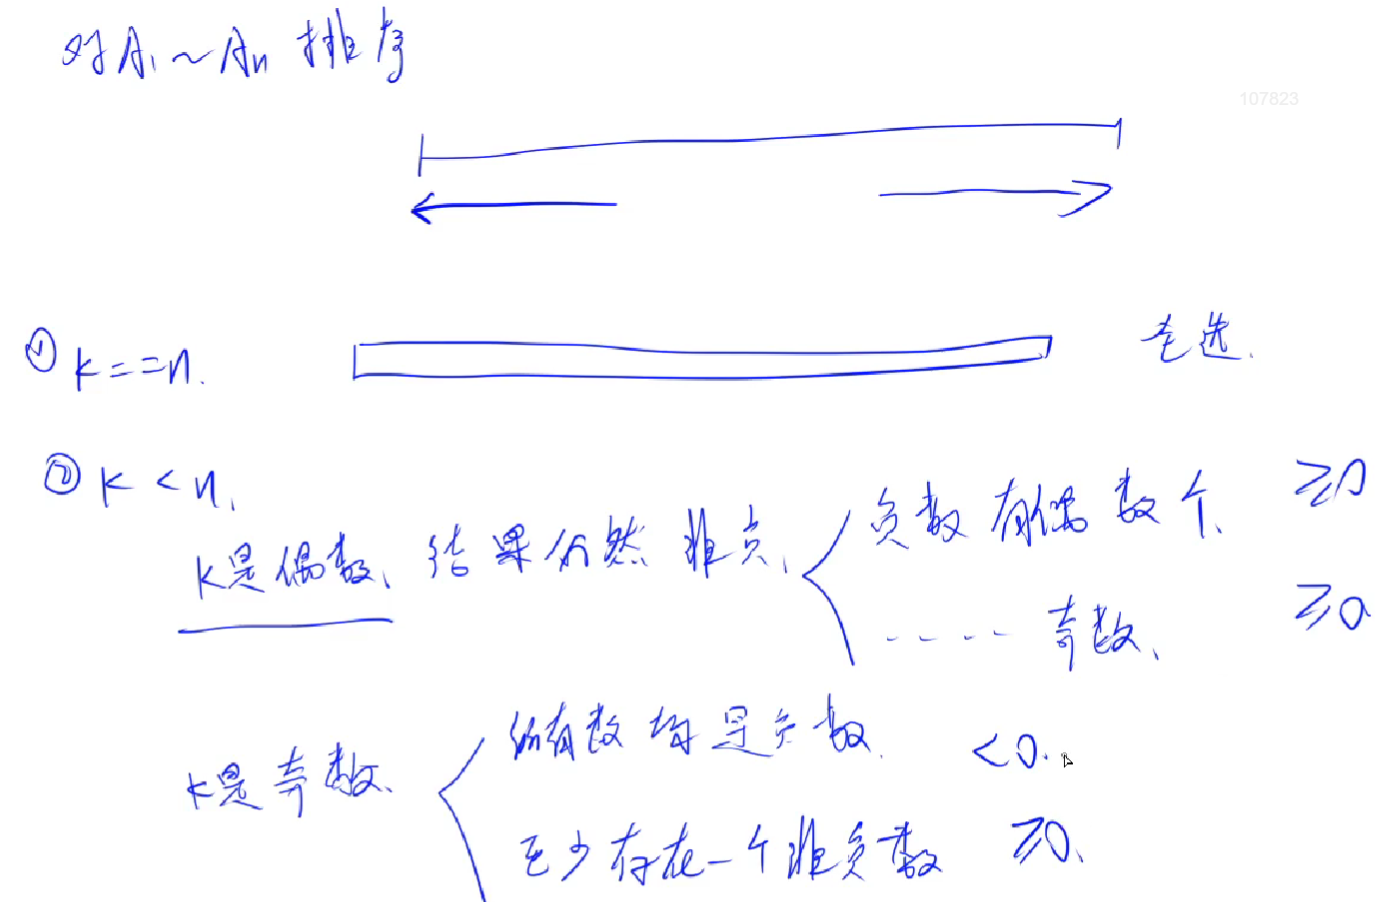 对A₁~Aₙ 排序
107823
① k==n. 全选.
② k<n.
k是偶数、结果仍然非负、
负数有偶数个、 ≥0
---- 奇数、 ≥0
k是奇数、
所有数均是负数、 <0.
至少存在一个非负数 ≥0、